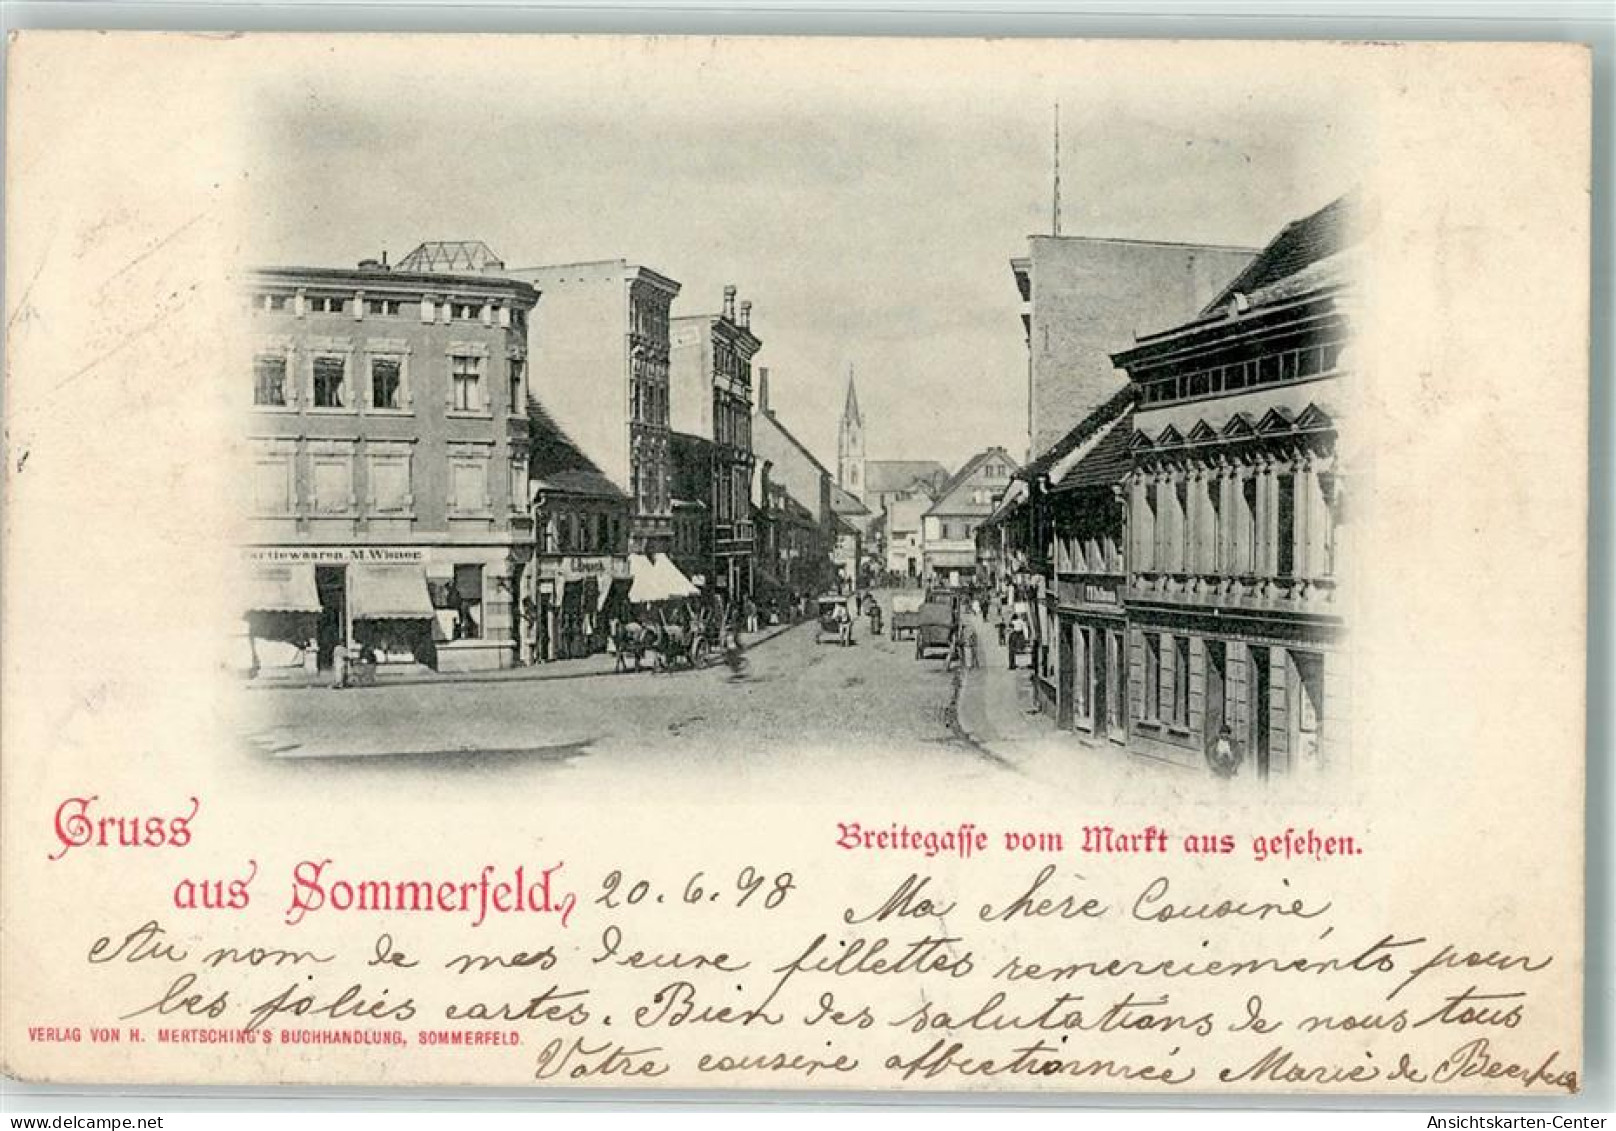 artiewaaren. M. Wiener
Gruss
aus Sommerfeld.
Breitegasse vom Markt aus gesehen.
20.6.98 Ma chère Cousine,
Au nom de mes deux fillettes remerciements pour
les jolies cartes. Bien des salutations de nous tous
VERLAG VON H. MERTSCHING'S BUCHHANDLUNG, SOMMERFELD.
Votre cousine affectionnée Marie de
Ansichtskarten-Center